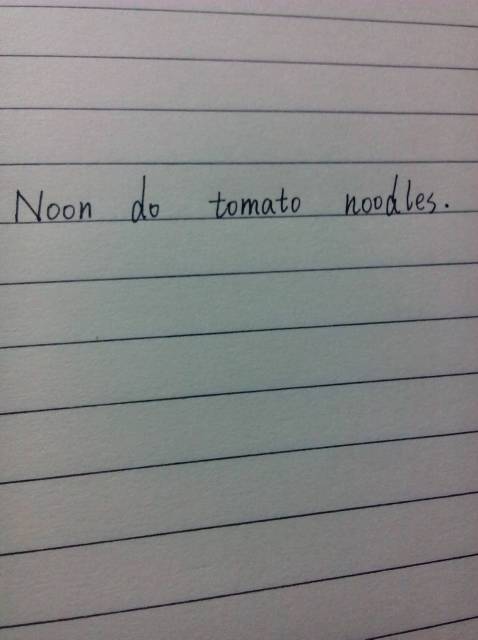 Noon do tomato noodles.